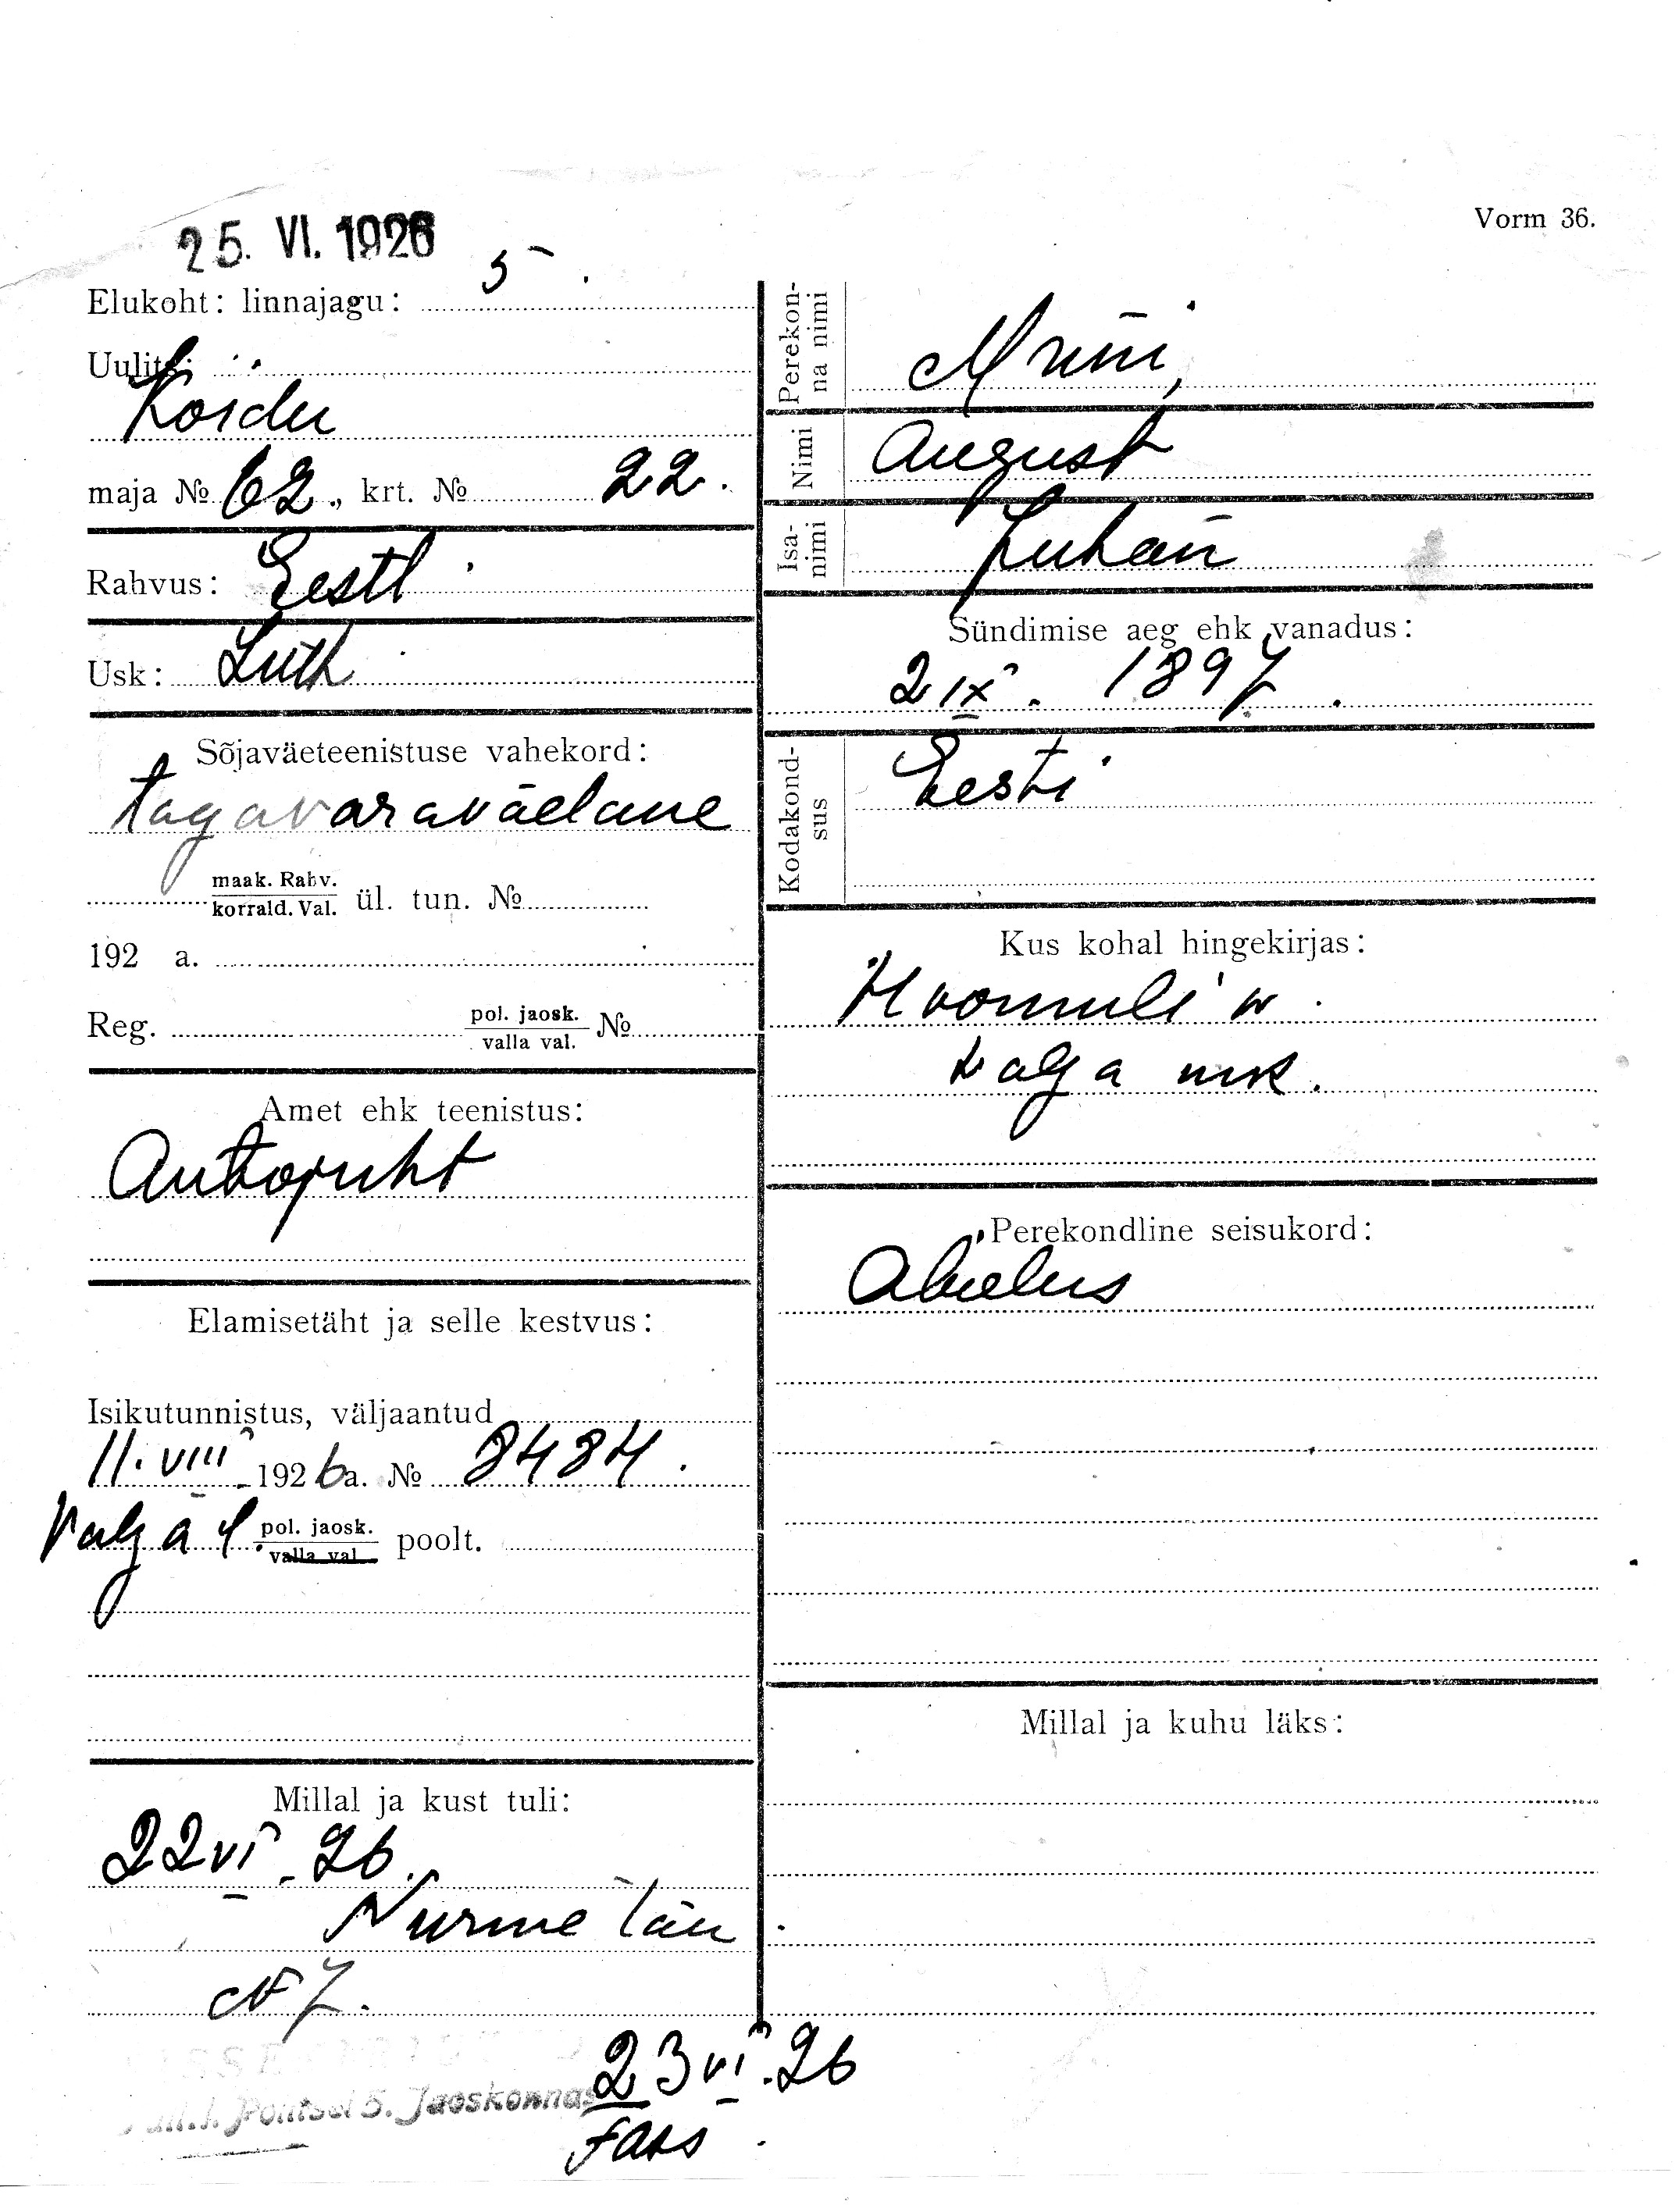 25. VI. 1926
Vorm 36.
Elukoht: linnajagu: 5
Uulits:
Koidu
maja № 62., krt. № 22.
Rahvus: Eesti
Usk: Luth
Sõjaväeteenistuse vahekord:
tagavaraväelane
maak. Rahv.
korrald. Val. ül. tun. №
192 a.
Reg. pol. jaosk.
valla val. №
Amet ehk teenistus:
Autojuht
Elamisetäht ja selle kestvus:
Isikutunnistus, väljaantud
11. VIII 1926 a. № 8484.
Valga 1. pol. jaosk.
valla val. poolt.
Millal ja kust tuli:
22 VI. 26.
Nurme tän
№ 7.
Perekon-
na nimi
Nimi August
Isa-
nimi Juhan
Sündimise aeg ehk vanadus:
2 IX. 1897.
Kodakond-
sus Eesti
Kus kohal hingekirjas:
Hoomuli w.
Valga mk.
Perekondline seisukord:
Abielus
Millal ja kuhu läks:
5. Jaoskonnas
23 VI. 26